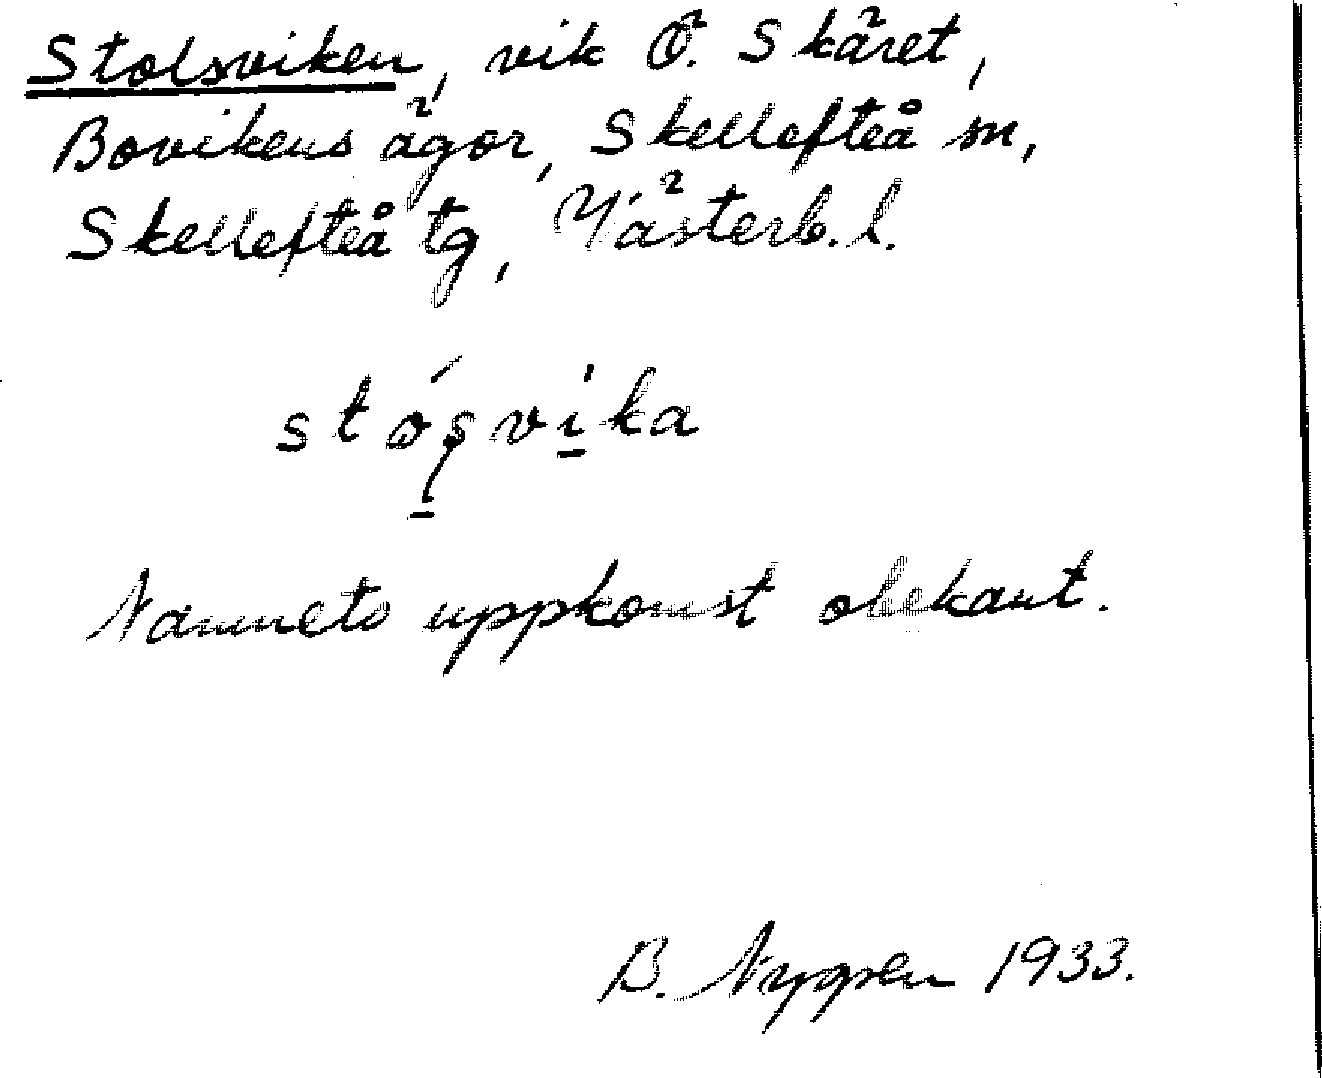 Stolsviken, vik Ö. Skäret,
Bovikens ägor, Skellefteå sn,
Skellefteå tg, Västerb. l.
stósvika
Namnets uppkomst obekant.
B. Nygren 1933.